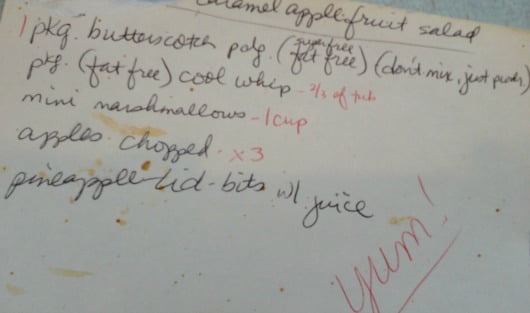 Caramel apple fruit salad
1 pkg. butterscotch pdg. (sugar free fat free) (don't mix, just powder)
pkg. (fat free) cool whip - 2/3 of tub
mini marshmallows - 1 cup
apples chopped - x3
pineapple tid-bits w/ juice
Yum!